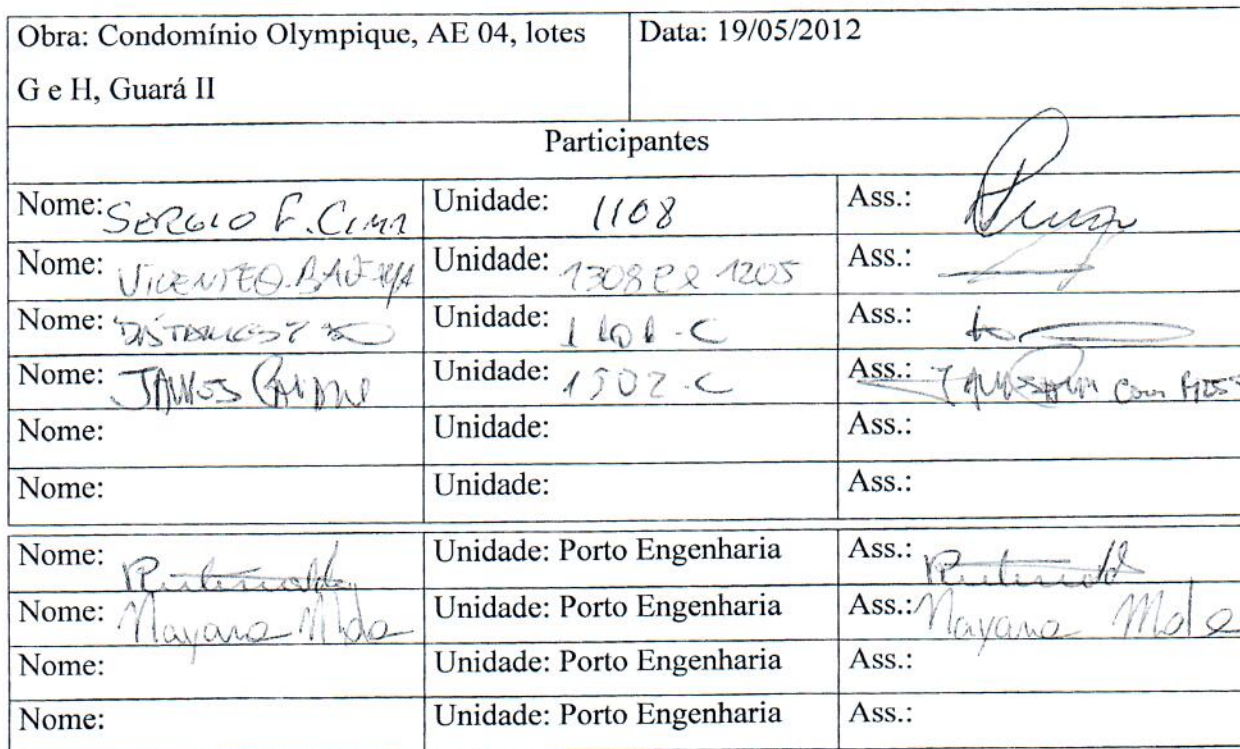 Obra: Condomínio Olympique, AE 04, lotes Data: 19/05/2012
G e H, Guará II
Participantes
Nome: SERGIO F. LIMA Unidade: 1108 Ass.:
Nome: VICENTE Q. Unidade: 1308 1205 Ass.:
Nome: Unidade: 1101-C Ass.:
Nome: Unidade: 1502-C Ass.: com
Nome: Unidade: Ass.:
Nome: Unidade: Ass.:
Nome: Unidade: Porto Engenharia Ass.:
Nome: Nayana Unidade: Porto Engenharia Ass.: Nayana
Nome: Unidade: Porto Engenharia Ass.:
Nome: Unidade: Porto Engenharia Ass.: